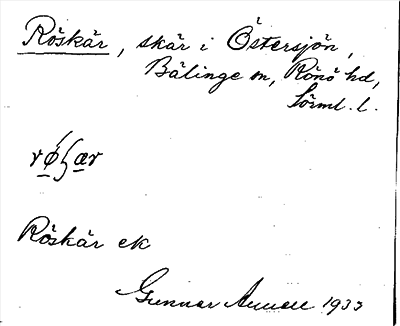 Röskär, skär i Östersjön,
Bälinge sn, Rönö hd,
Sörml. l.
Röskär ek
Gunnar 1933